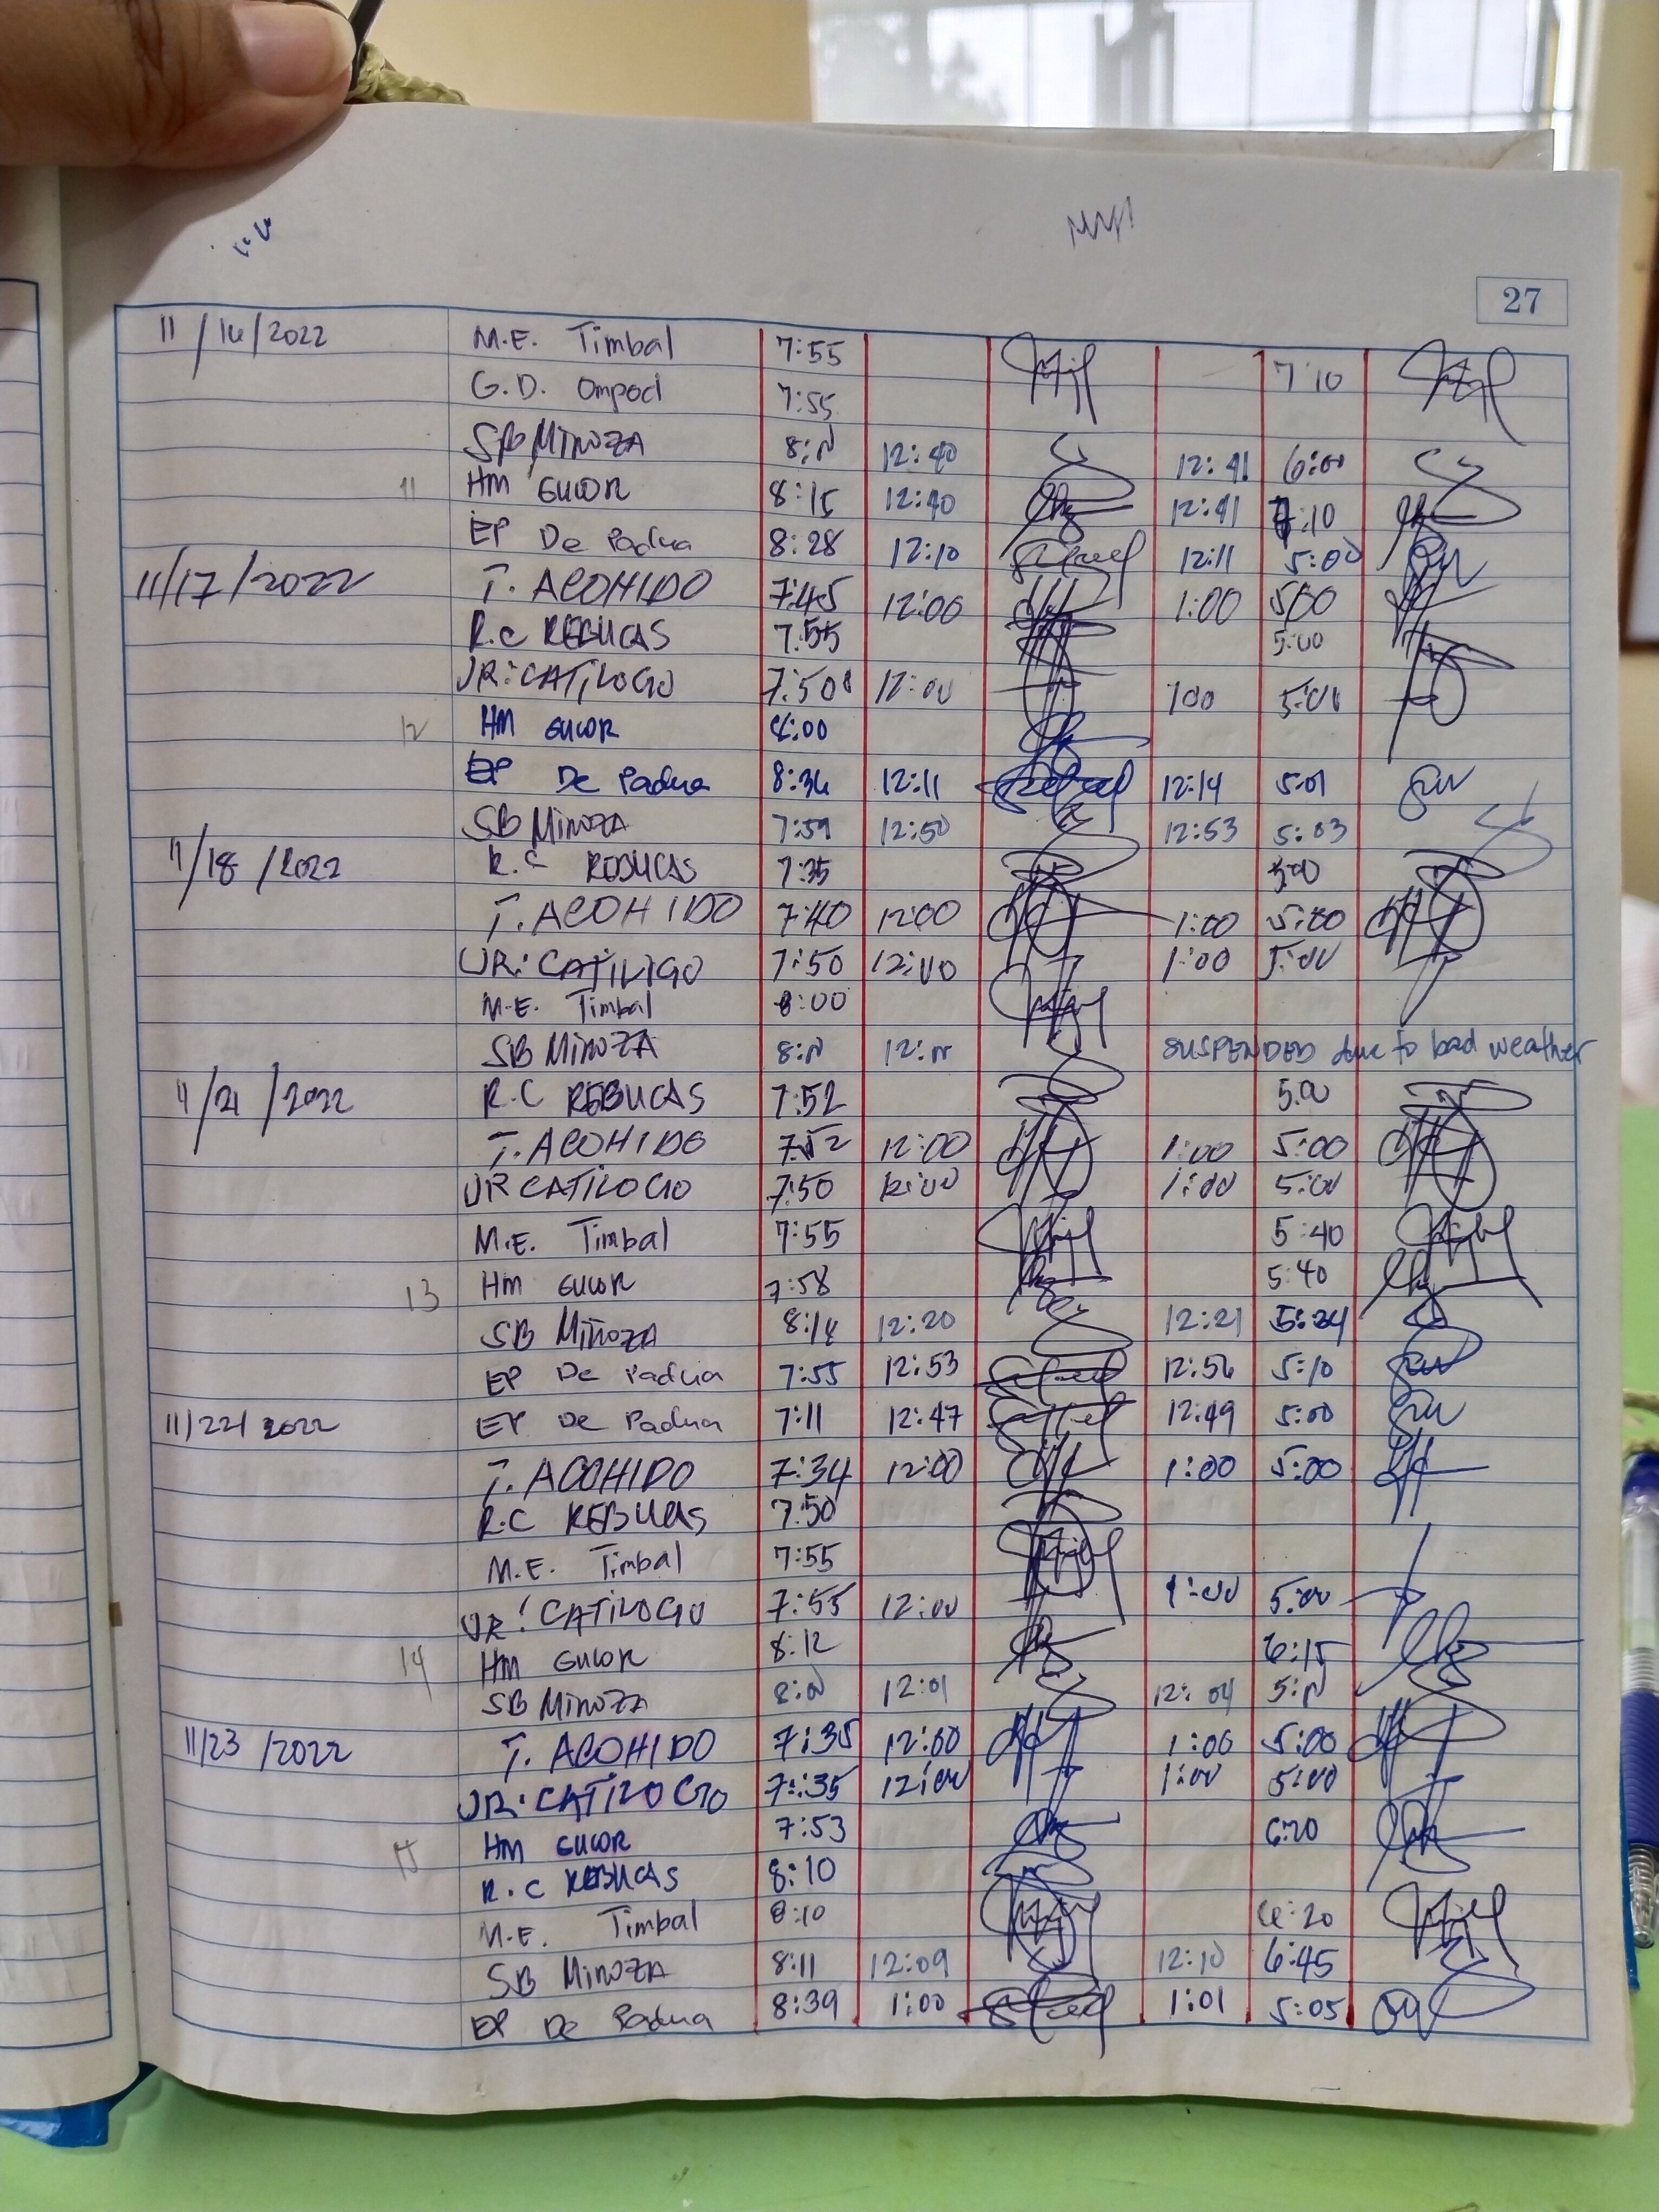 27
11/16/2022 M.E. Timbal 7:55 7:10
G.D. Ompod 7:55
SB MINOZA 12:40 12:41 6:00
11 HM GUCOR 8:15 12:40 12:41 7:10
EP De Padua 8:28 12:10 12:11 5:00
11/17/2022 T. ACOHIDO 7:45 12:00 1:00 5:00
R.C REBUCAS 7:55 5:00
JR: CATILOGO 7:50 12:00 1:00 5:00
12 HM GUCOR 8:00
EP De Padua 8:36 12:11 12:14 5:01
SB MINOZA 7:59 12:50 12:53 5:03
11/18/2022 R.C REBUCAS 7:35 5:00
T. ACOHIDO 7:40 12:00 1:00 5:00
JR: CATILOGO 7:50 12:00 1:00 5:00
M.E. Timbal 8:00
SB MINOZA SUSPENDED due to bad weather
11/21/2022 R.C REBUCAS 7:52 5:00
T. ACOHIDO 7:52 12:00 1:00 5:00
JR CATILOGO 7:50 12:00 1:00 5:00
M.E. Timbal 7:55 5:40
13 HM GUCOR 7:58 5:40
SB MIÑOZA 12:20 12:21 5:24
EP De Padua 7:55 12:53 12:56 5:10
11/22/2022 EP De Padua 7:11 12:47 12:49 5:00
T. ACOHIDO 7:34 12:00 1:00 5:00
R.C REBUCAS 7:50
M.E. Timbal 7:55
JR: CATILOGO 7:55 12:00 1:00 5:00
14 HM GUCOR 8:12 6:15
SB MINOZA 12:01 12:04
11/23/2022 T. ACOHIDO 7:35 12:00 1:00 5:00
JR: CATILOGO 7:35 12:00 1:00 5:00
15 HM GUCOR 7:53 6:20
R.C REBUCAS 8:10
M.E. Timbal 8:10 6:20
SB MINOZA 8:11 12:09 12:10 6:45
EP De Padua 8:39 1:00 1:01 5:05